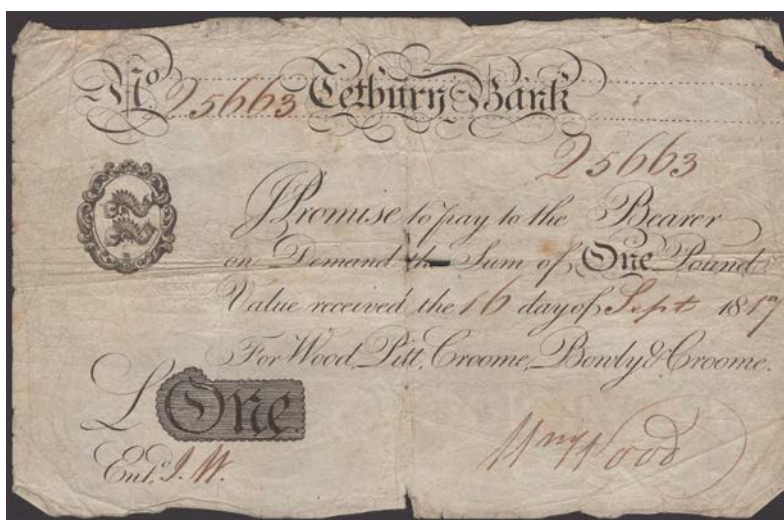 No 25663 Tetbury Bank
25663
I Promise to pay to the Bearer
on Demand the Sum of One Pound
Value received the 16 day of Sept 1817
For Wood, Pitt, Croome, Bowly & Croome.
£ One
Entd. J. W.
Hny Wood